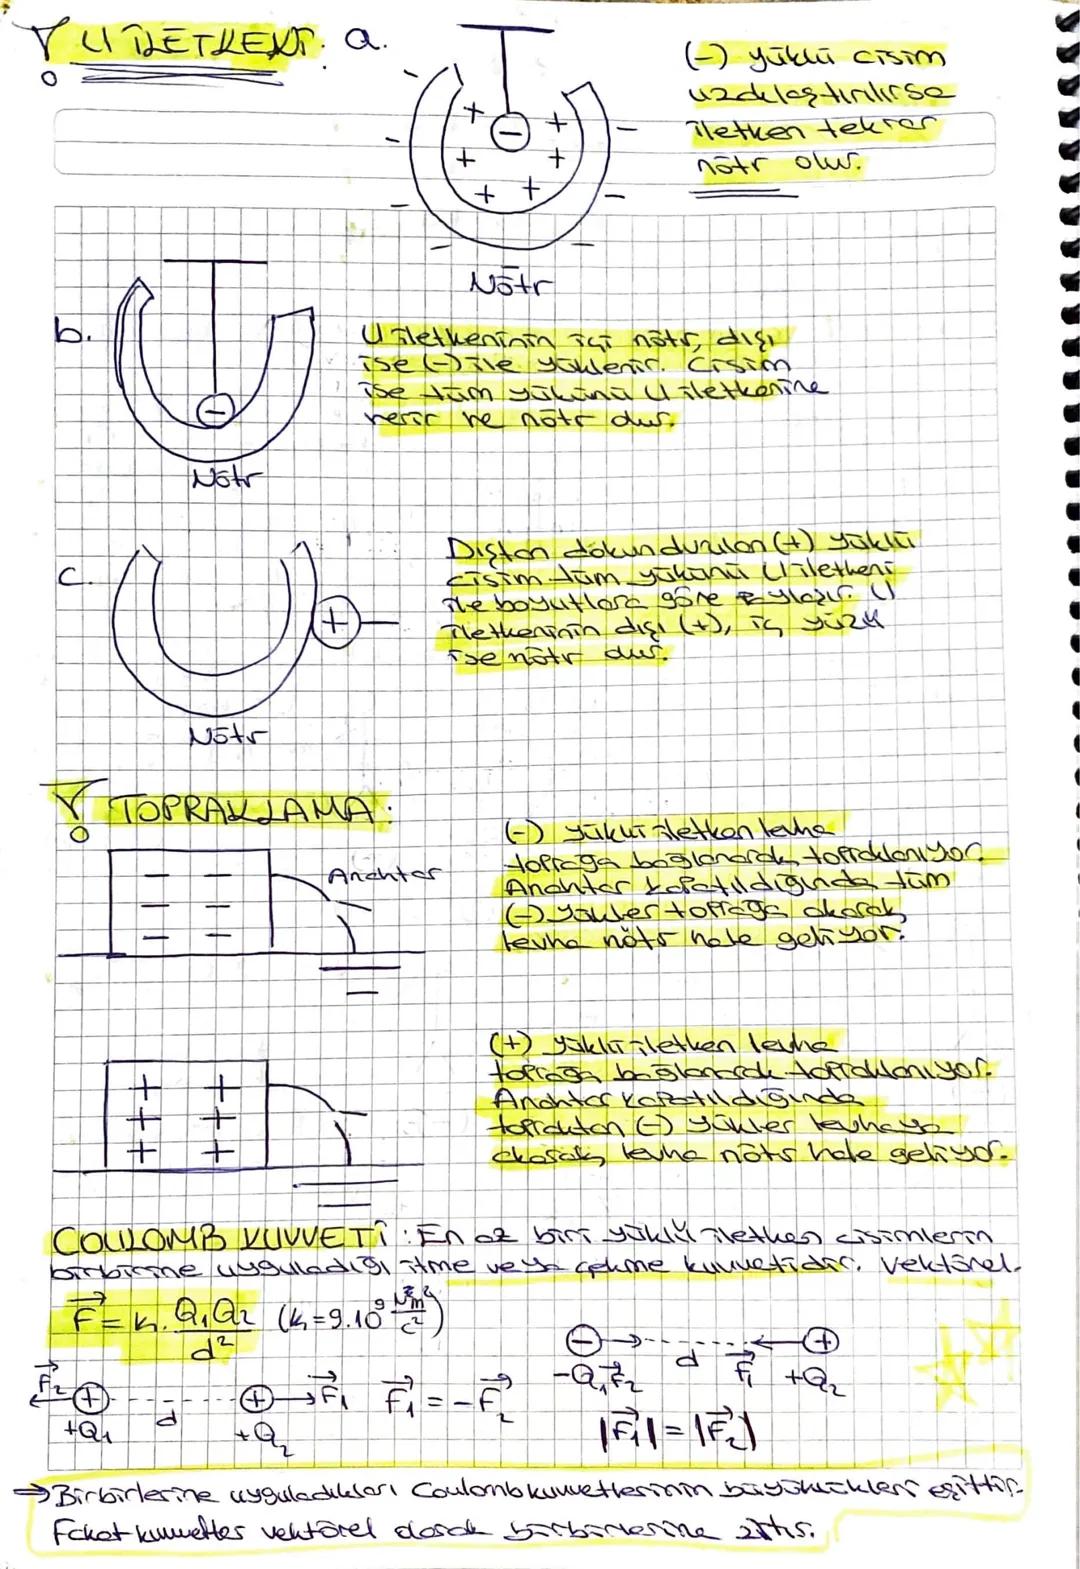 U İLETKENİ: a.
(-) yüklü cisim
uzaklaştırılırsa
iletken tekrar
nötr olur.
Nötr
b.
U iletkeninin içi nötr, dışı
ise (-) ile yüklenir. Cisim
ise tüm yükünü U iletkenine
verir ve nötr olur.
Nötr
c.
Dıştan dokundurulan (+) yüklü
cisim tüm yükünü U iletkeni
ile boyutlara göre paylaşır. U
iletkeninin dışı (+), iç yüzü
ise nötr olur.
Nötr
TOPRAKLAMA:
Anahtar
(-) yüklü iletken levha
toprağa bağlanarak topraklanıyor.
Anahtar kapatıldığında tüm
(-) yükler toprağa akarak,
levha nötr hale geliyor.
(+) yüklü iletken levha
toprağa bağlanarak topraklanıyor.
Anahtar kapatıldığında
topraktan (-) yükler levhaya
akarak, levha nötr hale geliyor.
COULOMB KUVVETİ: En az biri yüklü iletken cisimlerin
birbirine uyguladığı itme veya çekme kuvvetidir. Vektörel.
F = k. Q₁Q₂ / d² (k=9.10⁹ N.m²/C²)
- d +
-Q₁ F₂ F₁ +Q₂
F₂ + d + F₁ F₁ = -F₂
+Q₁ +Q₂
|F₁| = |F₂|
→ Birbirlerine uyguladıkları Coulomb kuvvetlerinin büyüklükleri eşittir.
Fakat kuvvetler vektörel olarak birbirlerine zıttır.